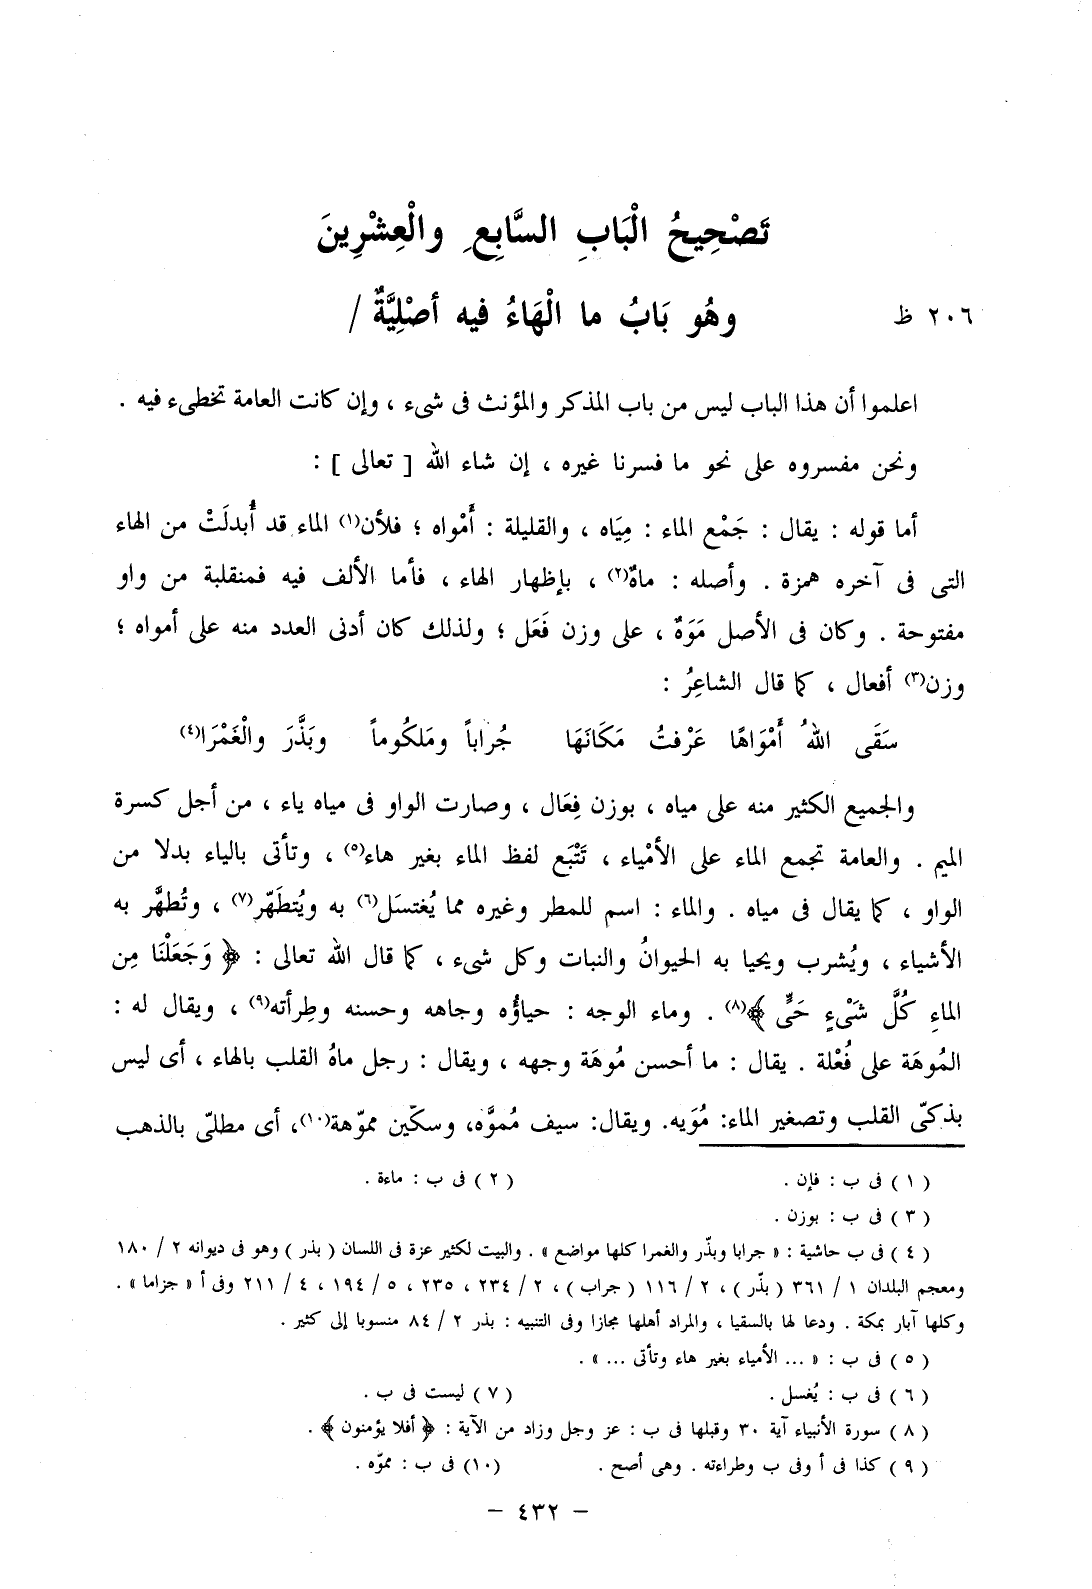 تَصْحِيحُ الْبَابِ السَّابِعِ والْعِشْرِينَ
٢٠٦ ظ
وهُو بَابُ ما الْهَاءُ فيه أصْلِيَّةٌ /
اعلموا أن هذا الباب ليس من باب المذكر والمؤنث فى شىء ، وإن كانت العامة تخطىء فيه .
ونحن مفسروه على نحو ما فسرنا غيره ، إن شاء الله [ تعالى ] :
أما قوله : يقال : جَمْع الماء : مِيَاه ، والقليلة : أَمْواه ؛ فلأن(١) الماء قد أُبدلَتْ من الهاء
التى فى آخره همزة . وأصله : ماهٌ(٢) ، بإظهار الهاء ، فأما الألف فيه فمنقلبة من واو
مفتوحة . وكان فى الأصل مَوَهٌ ، على وزن فَعَل ؛ ولذلك كان أدنى العدد منه على أمواه ؛
وزن(٣) أفعال ، كما قال الشاعِرُ :
سَقَى اللهُ أَمْوَاهًا عَرْفتُ مَكَانَهَا جُراباً ومَلكُوماً وبَذَّرَ والْغَمْرَا(٤)
والجميع الكثير منه على مياه ، بوزن فِعَال ، وصارت الواو فى مياه ياء ، من أجل كسرة
الميم . والعامة تجمع الماء على الأمْياء ، تَتْبَع لفظ الماء بغير هاء(٥) ، وتأتى بالياء بدلا من
الواو ، كما يقال فى مياه . والماء : اسم للمطر وغيره مما يُغتسَل(٦) به ويُتطَهّر(٧) ، وتُطهَّر به
الأشياء ، ويُشرب ويحيا به الحيوانُ والنبات وكل شىء ، كما قال الله تعالى : ﴿ وَجَعَلْنَا مِن
الماءِ كُلَّ شَىْءٍ حَىٍّ ﴾(٨) . وماء الوجه : حياؤُه وجاهه وحسنه وطِرأته(٩) ، ويقال له :
المُوهَة على فُعْلة . يقال : ما أحسن مُوهَة وجهه ، ويقال : رجل ماهُ القلب بالهاء ، أى ليس
بذكىّ القلب وتصغير الماء: مُوَيه. ويقال: سيف مُموَّه، وسكّين مموّهة(١٠)، أى مطلىّ بالذهب
( ١ ) فى ب : فإن . ( ٢ ) فى ب : ماءة .
( ٣ ) فى ب : بوزن .
( ٤ ) فى ب حاشية : « جرابا وبذّر والغمرا كلها مواضع » . والبيت لكثير عزة فى اللسان ( بذر ) وهو فى ديوانه ٢ / ١٨٠
ومعجم البلدان ١ / ٣٦١ ( بذّر ) ، ٢ / ١١٦ ( جراب ) ، ٢ / ٢٣٤ ، ٢٣٥ ، ٥ / ١٩٤ ، ٤ / ٢١١ وفى أ « جزاما » .
وكلها آبار بمكة . ودعا لها بالسقيا ، والمراد أهلها مجازا وفى التنبيه : بذر ٢ / ٨٤ منسوبا إلى كثير .
( ٥ ) فى ب : « ... الأمياء بغير هاء وتأتى ... » .
( ٦ ) فى ب : يُغسل . ( ٧ ) ليست فى ب .
( ٨ ) سورة الأنبياء آية ٣٠ وقبلها فى ب : عز وجل وزاد من الآية : ﴿ أفلا يؤمنون ﴾ .
( ٩ ) كذا فى أ وفى ب وطراءته . وهى أصح . (١٠) فى ب : مموّه .
– ٤٣٢ –